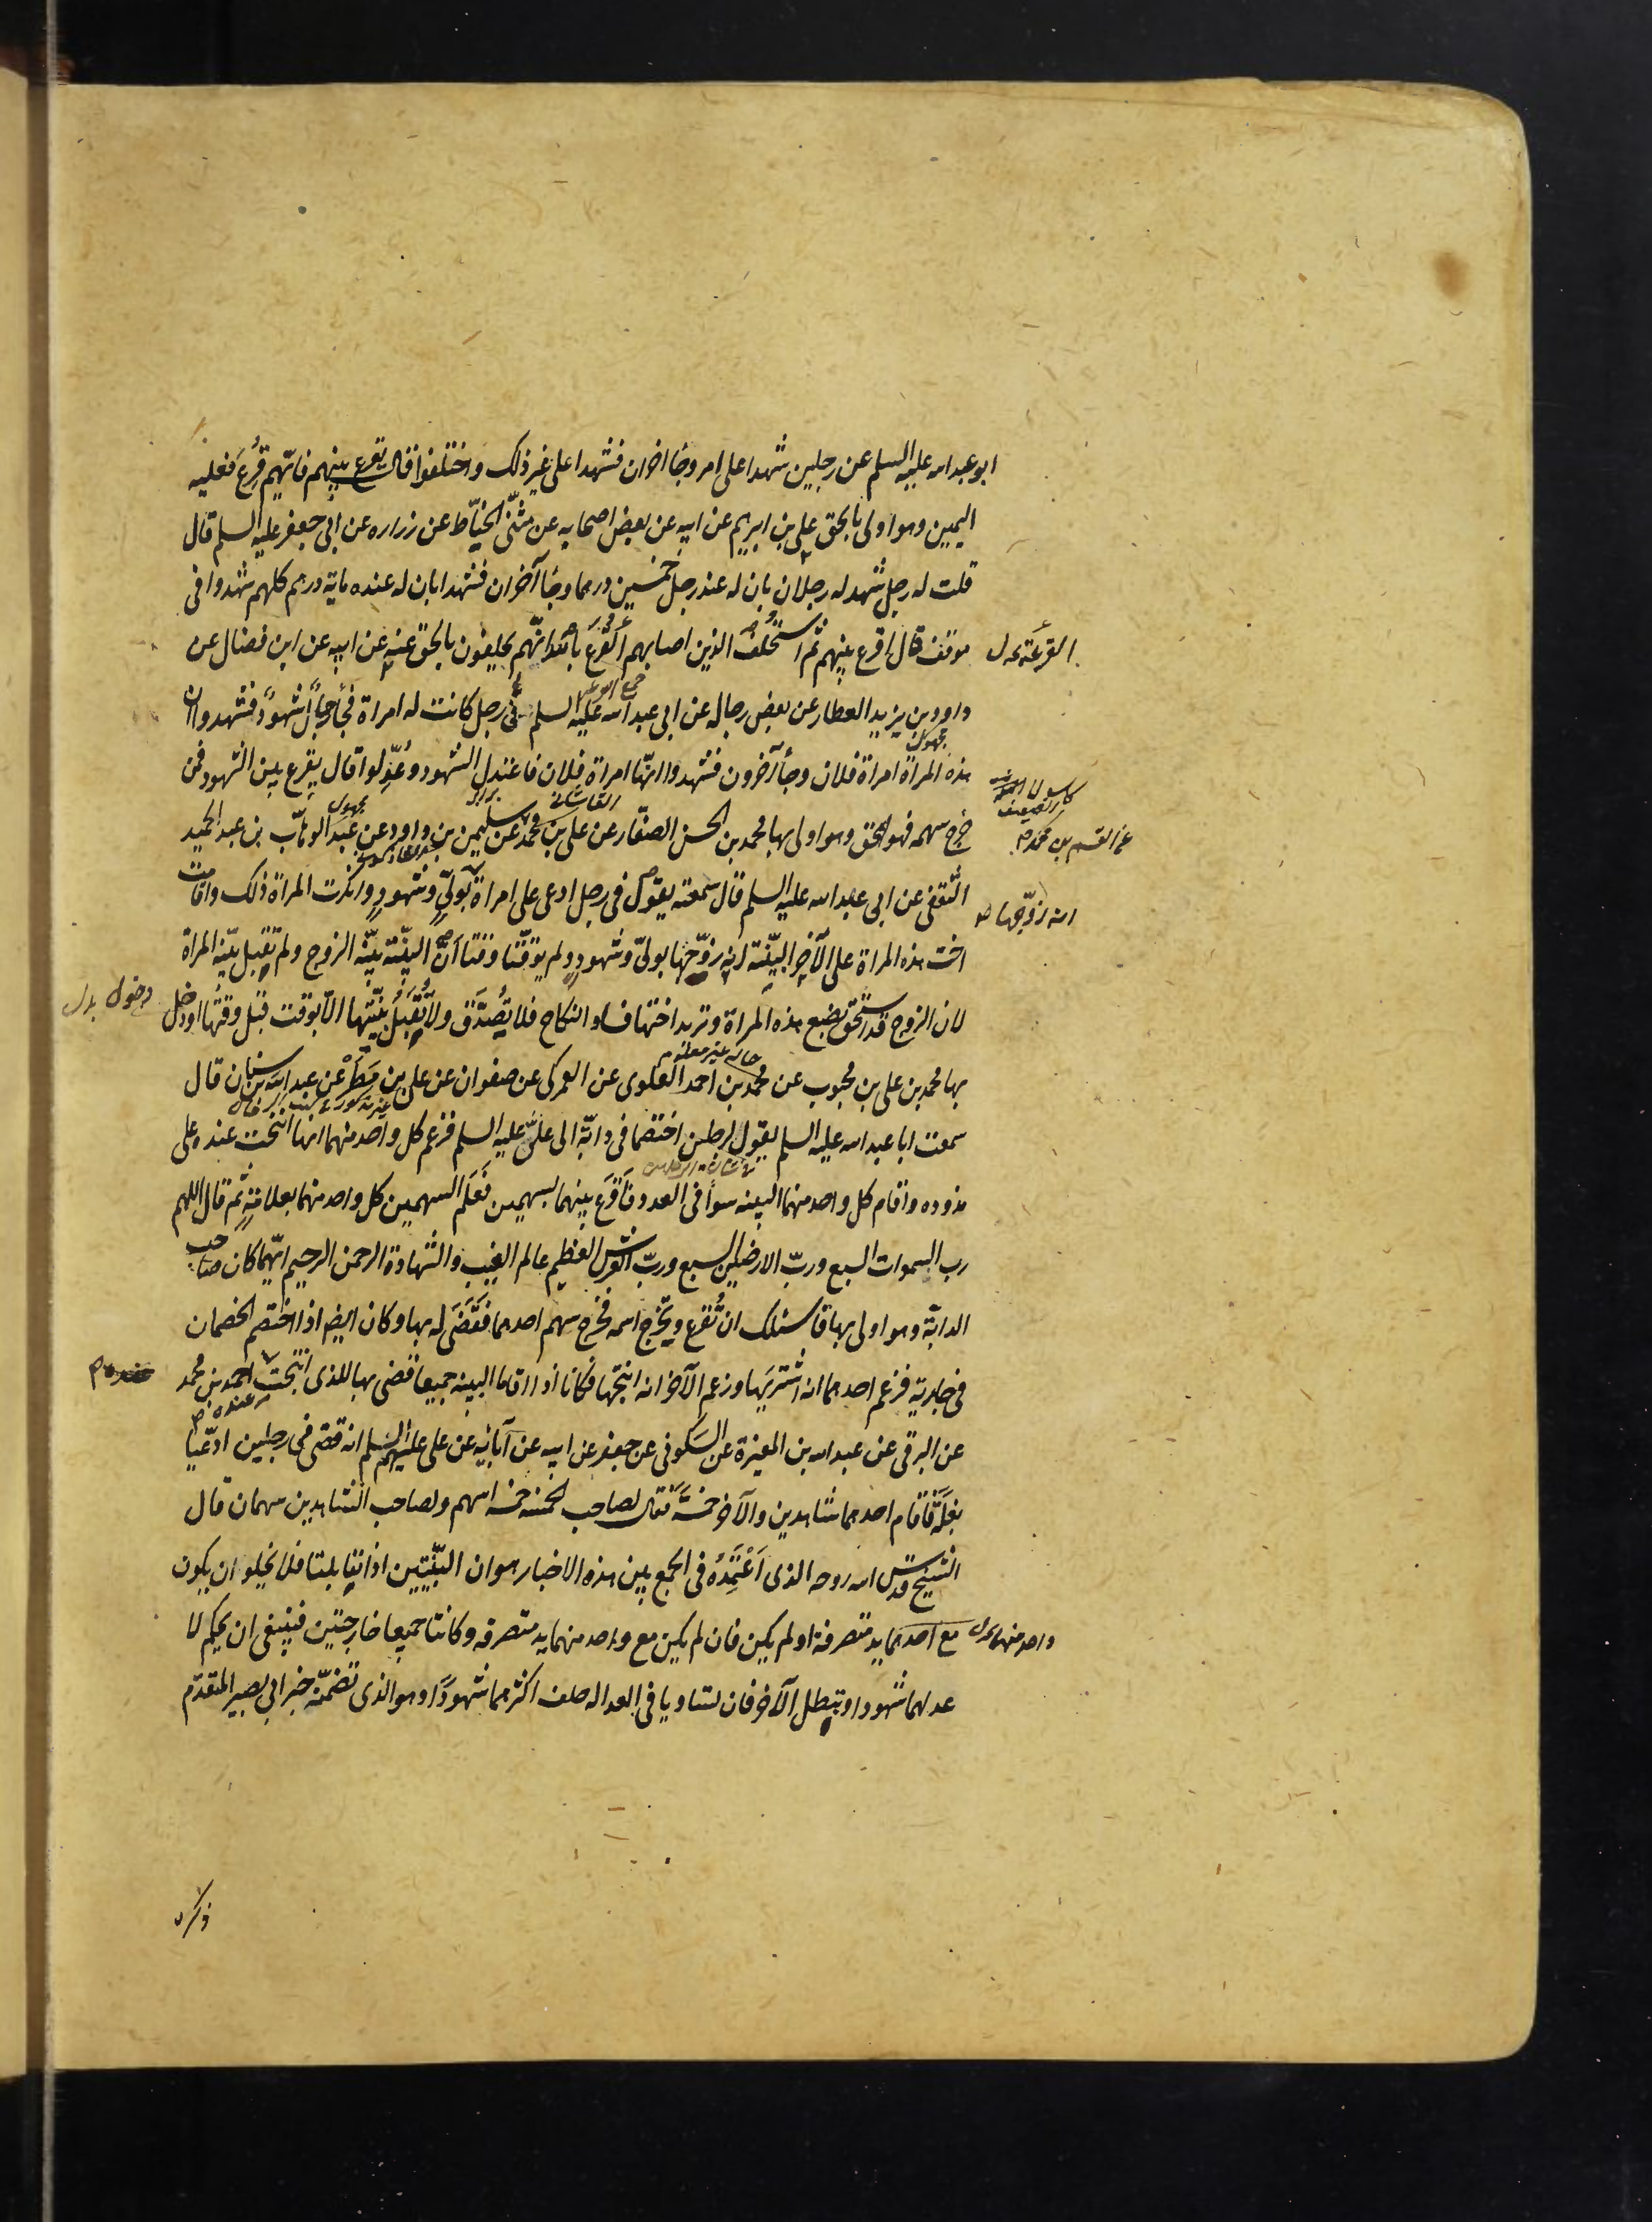 ابو عبد الله عليه السلم عن رجلين شهدا على امر وجا اخران فشهدا على غير ذلك واختلفوا قال يقرع بينهم فايهم قرع فعليه
اليمين وهو اولى بالحق علي بن ابرهيم عن ابيه عن بعض اصحابه عن مثنى الحناط عن زراره عن ابي جعفر عليه السلم قال
قلت له رجل شهد له رجلان بان له عند رجل خمسين درهما وجا آخران فشهدا بان له عنده ماية درهم كلهم شهدوا في
موقف قال اقرع بينهم ثم استحلف الذين اصابهم القرع بالله انهم يحلفون بالحق عنه عن ابيه عن ابن فضال عن
القرعة
داود بن يزيد العطار عن بعض رجاله عن ابي عبد الله عليه السلم في رجل كانت له امراة فجاء رجل بشهود فشهدوا ان
هذه المراة امراة فلان وجاء آخرون فشهدوا انها امراة فلان فاعتدل الشهود وعدلوا قال يقرع بين الشهود فمن
مجهول
خرج سهمه فهو المحق وهو اولى بها محمد بن الحسن الصفار عن علي بن محمد عن سليمن بن داود عن عبد الوهاب بن عبد الحميد
القاشاني
مجهول
عن القسم بن محمد
الثقفي عن ابي عبد الله عليه السلم قال سمعته يقول في رجل ادعى على امراة بولي وشهود وانكرت المراة ذلك واقامت
انه زوجها
اخت هذه المراة على الآخر البينة انه زوجها بولي وشهود ولم يوقتا وقتا ان البينة بينة الزوج ولم تقبل بينة المراة
لان الزوج قد استحق بضع هذه المراة وتريد اختها فساد النكاح فلا تصدق ولا تقبل بينتها الا بوقت قبل وقتها او دخل
دخول بدل
بها محمد بن علي بن محبوب عن محمد بن احمد العلوي عن العمركي عن صفوان عن علي بن مطر عن عبد الله بن سنان قال
سمعت ابا عبد الله عليه السلم يقول لرجلين اختصما في دابة الى علي عليه السلم فزعم كل واحد منهما انها انتجت عنده على
مذوده واقام كل واحد منهما البينه سواء في العدد فاقرع بينهما بسهمين فعلم السهمين كل واحد منهما بعلامة ثم قال اللهم
رب السموات السبع ورب الارضين السبع ورب العرش العظيم عالم الغيب والشهادة الرحمن الرحيم ايهما كان صاحب
الدابة وهو اولى بها فاسئلك ان تقرع ويخرج اسمه فخرج سهم احدهما فقضى له بها وكان ايضا اذا اختصم الخصمان
في جارية فزعم احدهما انه اشتريها وزعم الآخر انه انتجها فكانا اذا اقاما البينه جميعا قضى بها للذي انتجت احمد بن محمد
عنده
عن البرقي عن عبد الله بن المغيرة عن السكوني عن جعفر عن ابيه عن آبائه عن علي عليهم السلم انه قضى في رجلين ادعيا
بغلة فاقام احدهما شاهدين والآخر خمسة فقال لصاحب الخمسه خمسه اسهم ولصاحب الشاهدين سهمان قال
الشيخ قدس الله روحه الذي اعتمده في الجمع بين هذه الاخبار هو ان البينتين اذا تقابلتا فلا يخلو ان يكون
مع احدهما يد متصرفة او لم يكن فان لم يكن مع واحد منهما يد متصرفه وكانتا جميعا خارجتين فينبغي ان يحكم لا
واحد منهما بدل
عدلهما شهودا ويبطل الآخر فان تساويا في العداله حلف اكثرهما شهودا وهو الذي تضمنه خبر ابي بصير المتقدم
ذكره